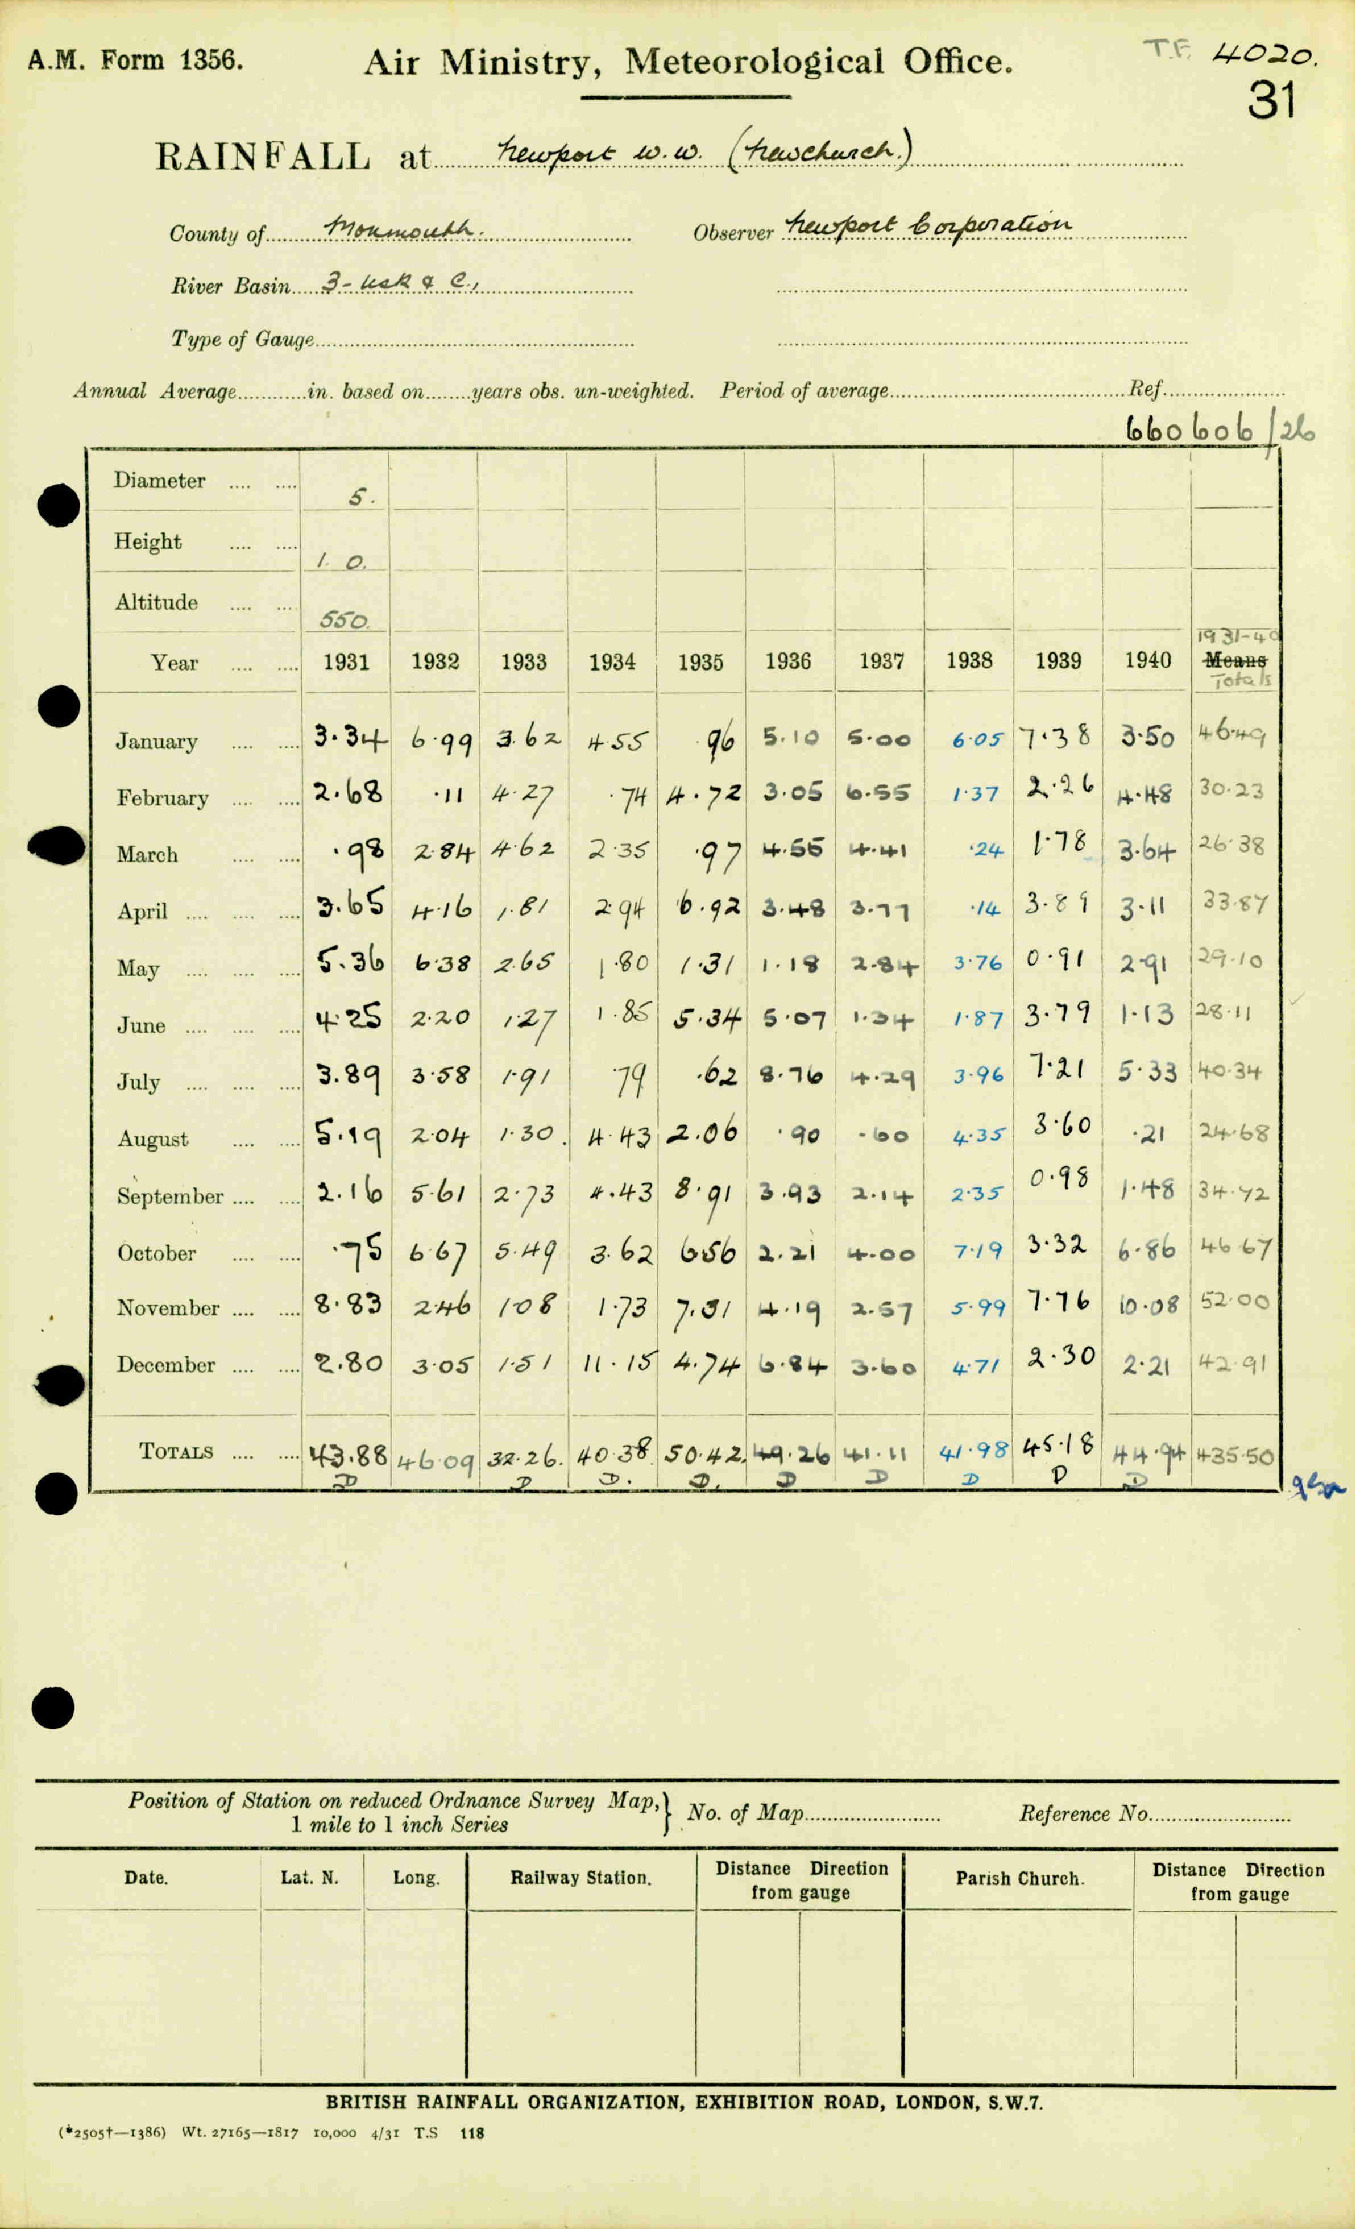 A.M. Form 1356.
Air Ministry, Meteorological Office.
T.F. 4020.
31
RAINFALL at Newport W.W. (Newchurch.)
County of Monmouth. Observer Newport Corporation
River Basin 3 - Usk & C.,
Type of Gauge
Annual Average in. based on years obs. un-weighted. Period of average Ref.
660606/26
Diameter 5.
Height 1. 0.
Altitude 550.
Year 1931 1932 1933 1934 1935 1936 1937 1938 1939 1940 1931-40 Means Totals
January 3.34 6.99 3.62 4.55 .96 5.10 5.00 6.05 7.38 3.50 46.49
February 2.68 .11 4.27 .74 4.72 3.05 6.55 1.37 2.26 4.48 30.23
March .98 2.84 4.62 2.35 .97 4.55 4.41 .24 1.78 3.64 26.38
April 3.65 4.16 1.81 2.94 6.92 3.48 3.77 .14 3.89 3.11 33.87
May 5.36 6.38 2.65 1.80 1.31 1.18 2.84 3.76 0.91 2.91 29.10
June 4.25 2.20 1.27 1.85 5.34 5.07 1.34 1.87 3.79 1.13 28.11
July 3.89 3.58 1.91 .79 .62 8.76 4.29 3.96 7.21 5.33 40.34
August 5.19 2.04 1.30. 4.43 2.06 .90 .60 4.35 3.60 .21 24.68
September 2.16 5.61 2.73 4.43 8.91 3.93 2.14 2.35 0.98 1.48 34.72
October .75 6.67 5.49 3.62 6.56 2.21 4.00 7.19 3.32 6.86 46.67
November 8.83 2.46 1.08 1.73 7.31 4.19 2.57 5.99 7.76 10.08 52.00
December 2.80 3.05 1.51 11.15 4.74 6.84 3.60 4.71 2.30 2.21 42.91
TOTALS 43.88 46.09 32.26. 40.38 50.42. 49.26 41.11 41.98 45.18 44.94 435.50
D D D. D. D D D D D
Position of Station on reduced Ordnance Survey Map, 1 mile to 1 inch Series } No. of Map Reference No.
Date. Lat. N. Long. Railway Station. Distance Direction from gauge Parish Church. Distance Direction from gauge
BRITISH RAINFALL ORGANIZATION, EXHIBITION ROAD, LONDON, S.W.7.
(*2505†—1386) Wt. 27165—1817 10,000 4/31 T.S 118